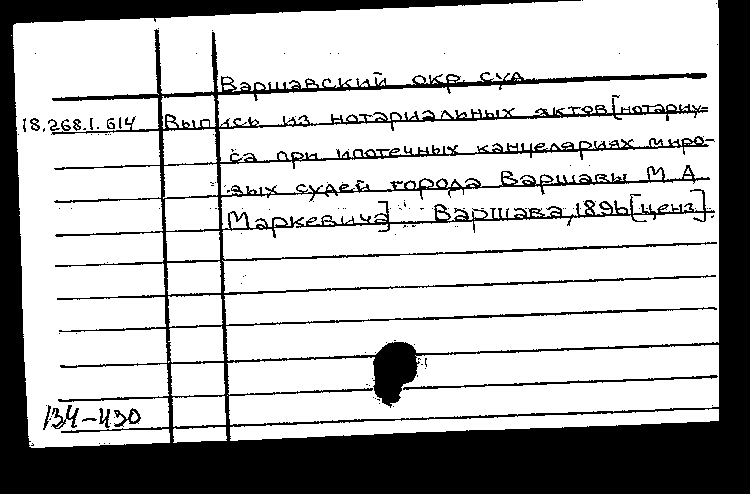 Варшавский окр. суд.
18.268.1.614 Выпись из нотариальных актов [нотариу-
са при ипотечных канцеляриях миро-
вых судей города Варшавы М. А.
Маркевича]. Варшава, 1896 [ценз].
134-430